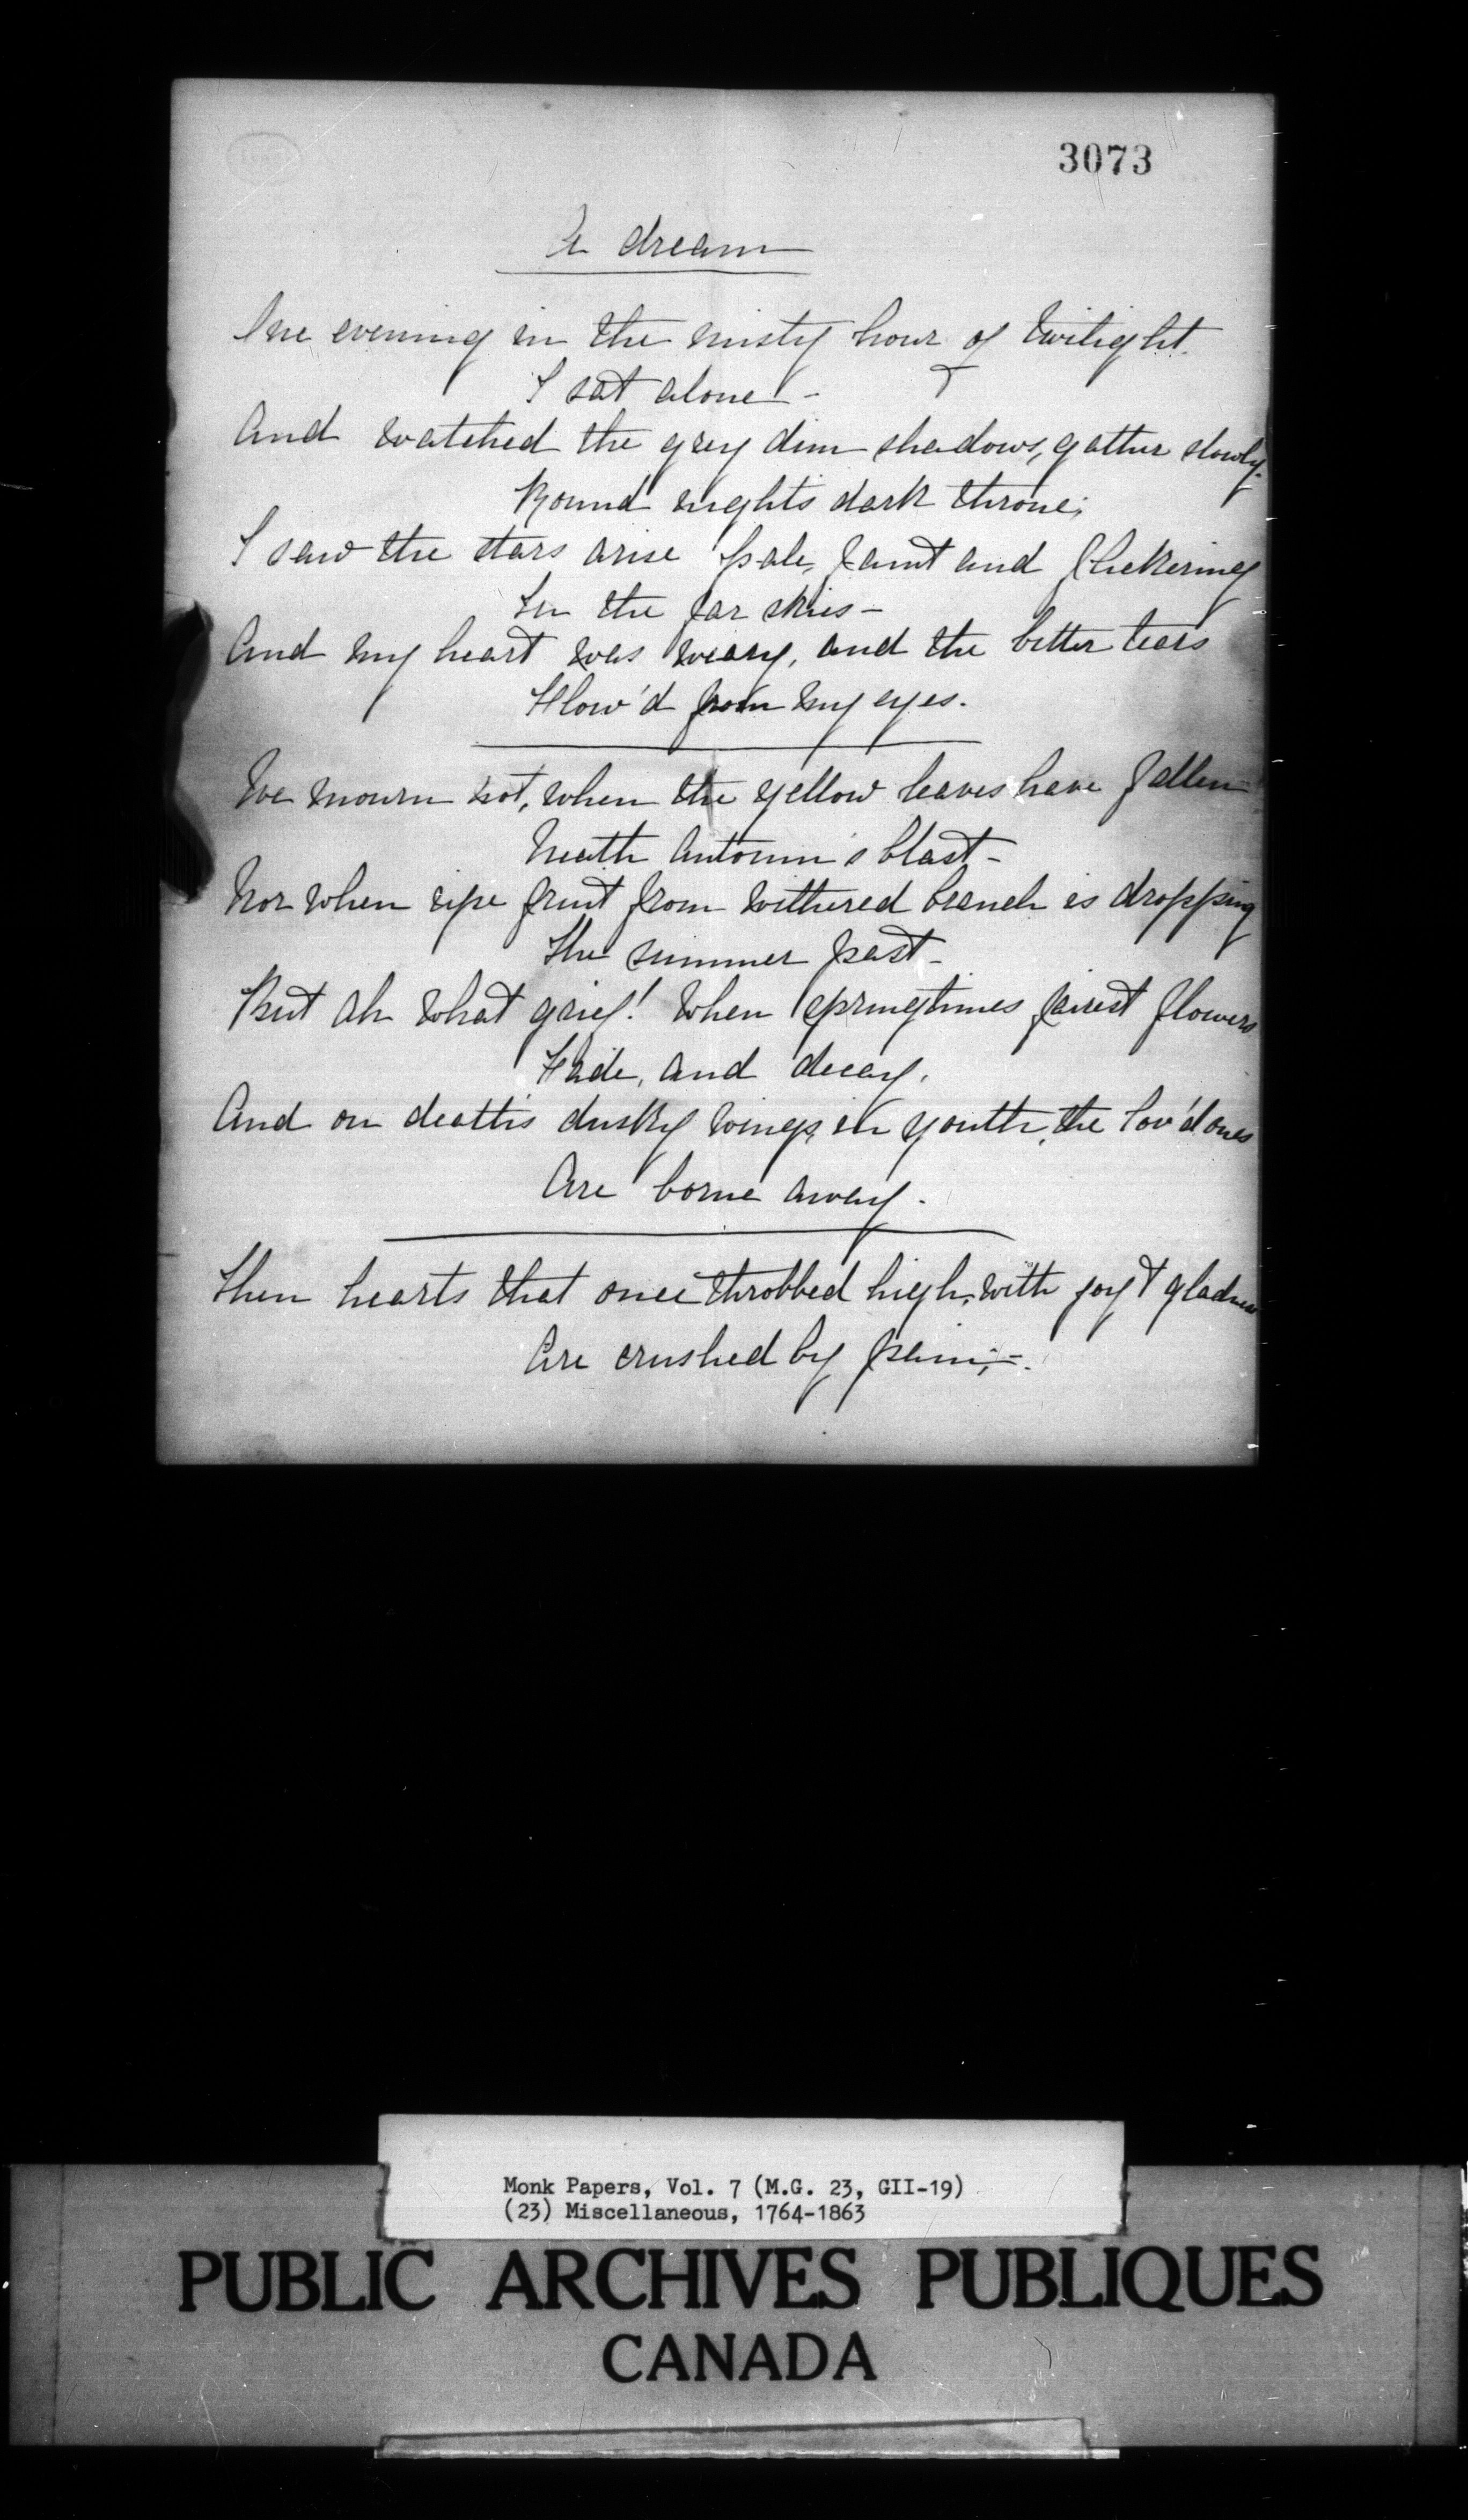 3073
A dream
One evening in the misty hour of twilight.
I sat alone -
And watched the grey dim shadows, gather slowly.
Round nights dark throne;
I saw the stars arise pale, faint and flickering
In the far skies -
And my heart was weary, and the bitter tears
Flow'd from my eyes.
We mourn not, when the yellow leaves have fallen
Neath Autumn's blast -
Nor when ripe fruit from withered branch is dropping
The summer past -
But ah what grief! When springtimes fairest flowers
Fade, and decay,
And on death's dusky wings, in youth, the lov'd ones
Are borne away.
Then hearts that once throbbed high, with joy & gladness
Are crushed by pain; -.
Monk Papers, Vol. 7 (M.G. 23, GII-19)
(23) Miscellaneous, 1764-1863
PUBLIC ARCHIVES PUBLIQUES
CANADA